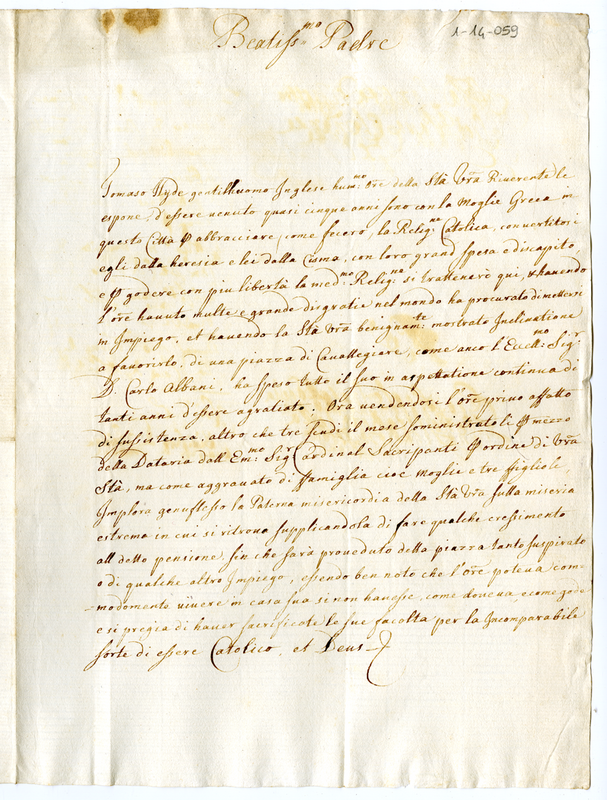 Beatiss.mo Padre
1-14-059
Tomaso Hyde gentilhuomo Inglese hum.mo ore della Stà Vrã Riverente le
espone d'essere venuto quasi cinque anni sono con la Moglie Greca in
questa Città p abbracciare, come fecero, la Relig.ne Catolica, convertitosi
egli dalla heresia e lei dalla Cisma, con loro gran spesa e discapito,
e p godere con piu libertà la med.ma Relig.ne si trattenere qui, & havendo
l'ore havuto multe e grande disgratie nel mondo ha procurato di mettersi
in Impiego, et havendo la Stà Vrã benignam.te mostrato Inclinatione
a favorirlo di una piazza di Cavallegiere, come anco l'Eccell.mo Sig.r
D. Carlo Albani, ha speso tutto il suo in aspettatione continua di
tanti anni d'essere agratiato. Ora vendendosi l'ore privo affatto
di sussistenza, altro che tre scudi il mese soministratoli p mezzo
della Dataria dall Em.mo Sig.r Cardinal Sacripanti p ordine di Vrã
Stà, ma come aggravato di ffamiglia cioè Moglie e tre figlioli,
Implora genuflesso la Paterna misericordia della Stà Vrã sulla miseria
estrema in cui si ritrova supplicandola di fare qualche cressimento
all detto pensione, sin che sarà proveduto della piazza tanto suspirata
o di qualche altro Impiego, essendo ben noto che l'ore poteva com-
=modomente vivere in casa sua si non havesse, come doveva, e come gode
e si pregia di haver sacrificate le sue facoltà per la Incomparabile
sorte di essere Catolico, et Deus